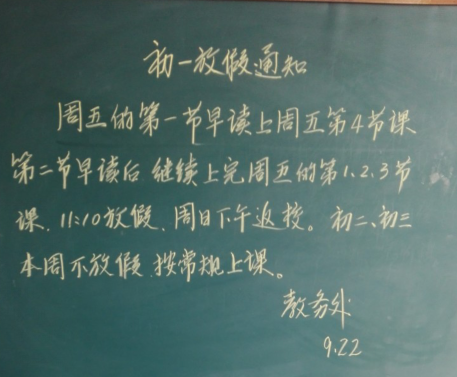 初一放假通知
周五的第一节早读上周五第4节课
第二节早读后继续上完周五的第1、2、3节
课、11:10放假、周日下午返校。初二、初三
本周不放假按常规上课。
教务处
9.22